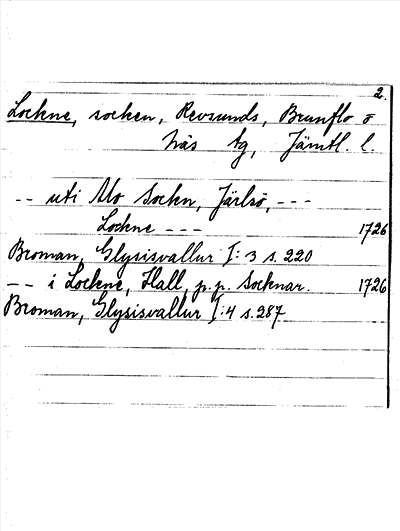 2.
Lockne, socken, Revsunds, Brunflo o
Näs tg, Jämtl. l.
-- uti Mo Sockn, Järlsö, ---
Lockne --- 1726
Broman, Glysisvallur I:3 s.220
-- i Lockne, Hall, p.p. Socknar. 1726
Broman, Glysisvallur I:4 s.287